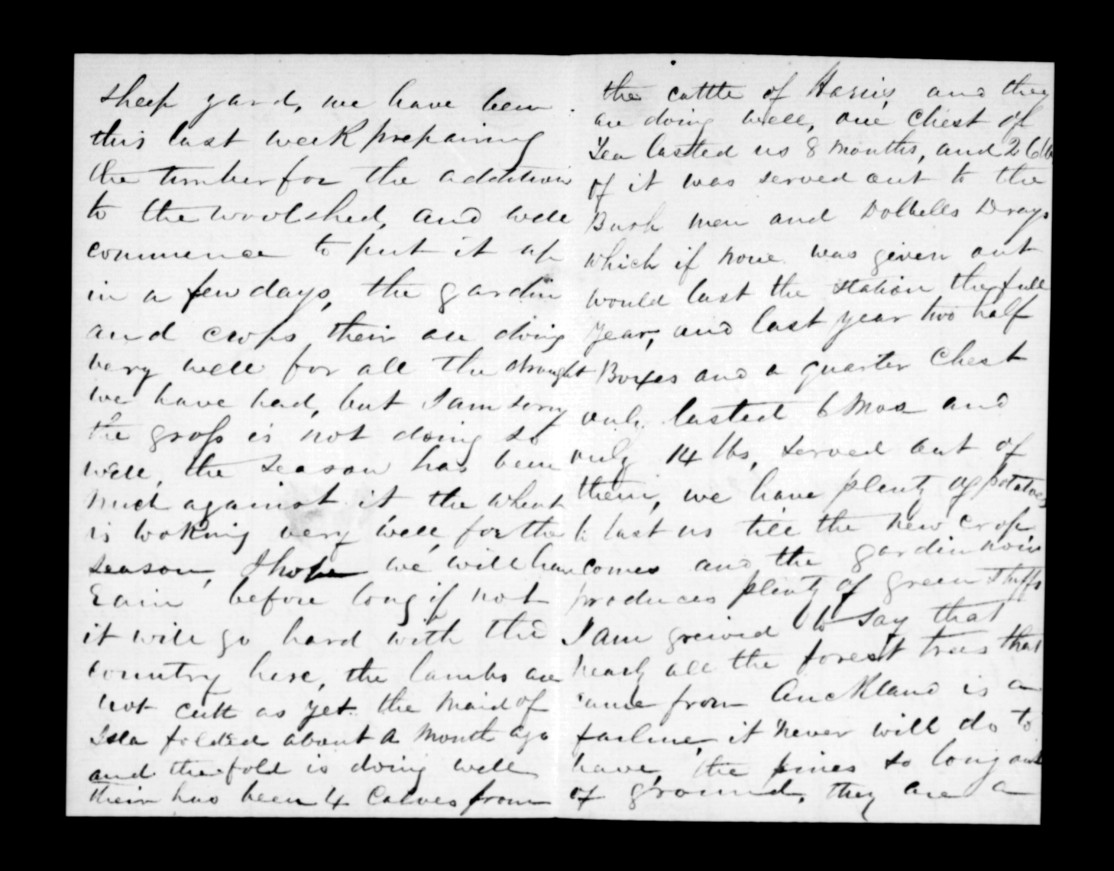 sheep yard, we have been
this last week preparing
the timber for the addition
to the woolshed, and will
commence to put it up
in a few days, the gardin
and crops their are doing
very well for all the drought
we have had, but I am sorry
the grass is not doing so
well, the season has been
much against it, the wheat
is looking very well, for the
season, I hope we will have
Rain before long if not
it will go hard with the
country here, the lambs are
not cutt as yet. the Maid of
Isla folded about a month ago
and the fold is doing well
their has been 4 Calves from
the cattle of Haris, and they
are doing well, one Chest of
Tea lasted us 8 months, and 26 lb
of it was served out to the
Bush men and Dolbells Drays
which if none was given out
would last the station the full
year, and last year two half
Boxes and a quarter Chest
only lasted 6 Mos and
only 14 lbs, served out of
them, we have plenty of potatoes
to last us till the new crop
comes and the gardin now
produces plenty of green stuffs
I am greived to say that
nearly all the forest trees that
came from Auckland is a
failure, it never will do to
have, the pines so long out
of ground, they are a